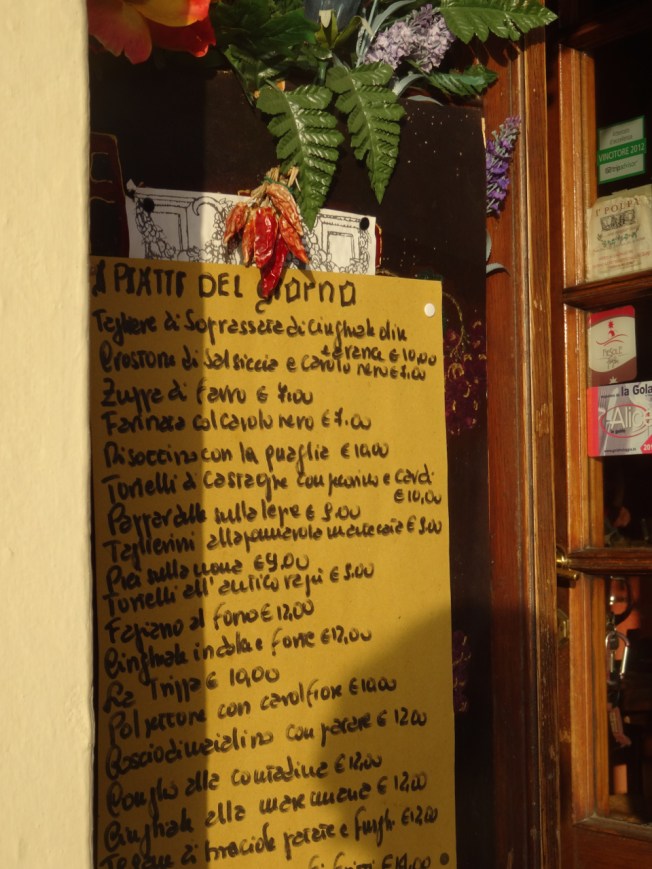 I PIATTI DEL giorno
Tagliere di Soprassata di Cinghiale di
e arance € 10,00
Crostone di Salsiccia e cavolo nero € 7,00
Zuppa di farro € 7,00
Farinata col cavolo nero € 7,00
Risoccino con la quaglia € 10,00
Tortelli di Castagne con pecorino e Cardi
€ 10,00
Pappardelle sulla lepre € 9,00
Taglierini alla pomarola maremmana € 9,00
Pici sulla nana € 9,00
Tortelli all'antico ragù € 9,00
Fagiano al forno € 12,00
Cinghiale in dolce e forte € 12,00
La Trippa € 10,00
Polpettone con cavolfiore € 10,00
Coscio di maialino con patate € 12,00
Coniglio alla contadina € 12,00
Cinghiale alla maremmana € 12,00
Tegame di braciole patate e funghi € 12,00
fritti € 14,00
VINCITORE 2012
la Gola
Alice